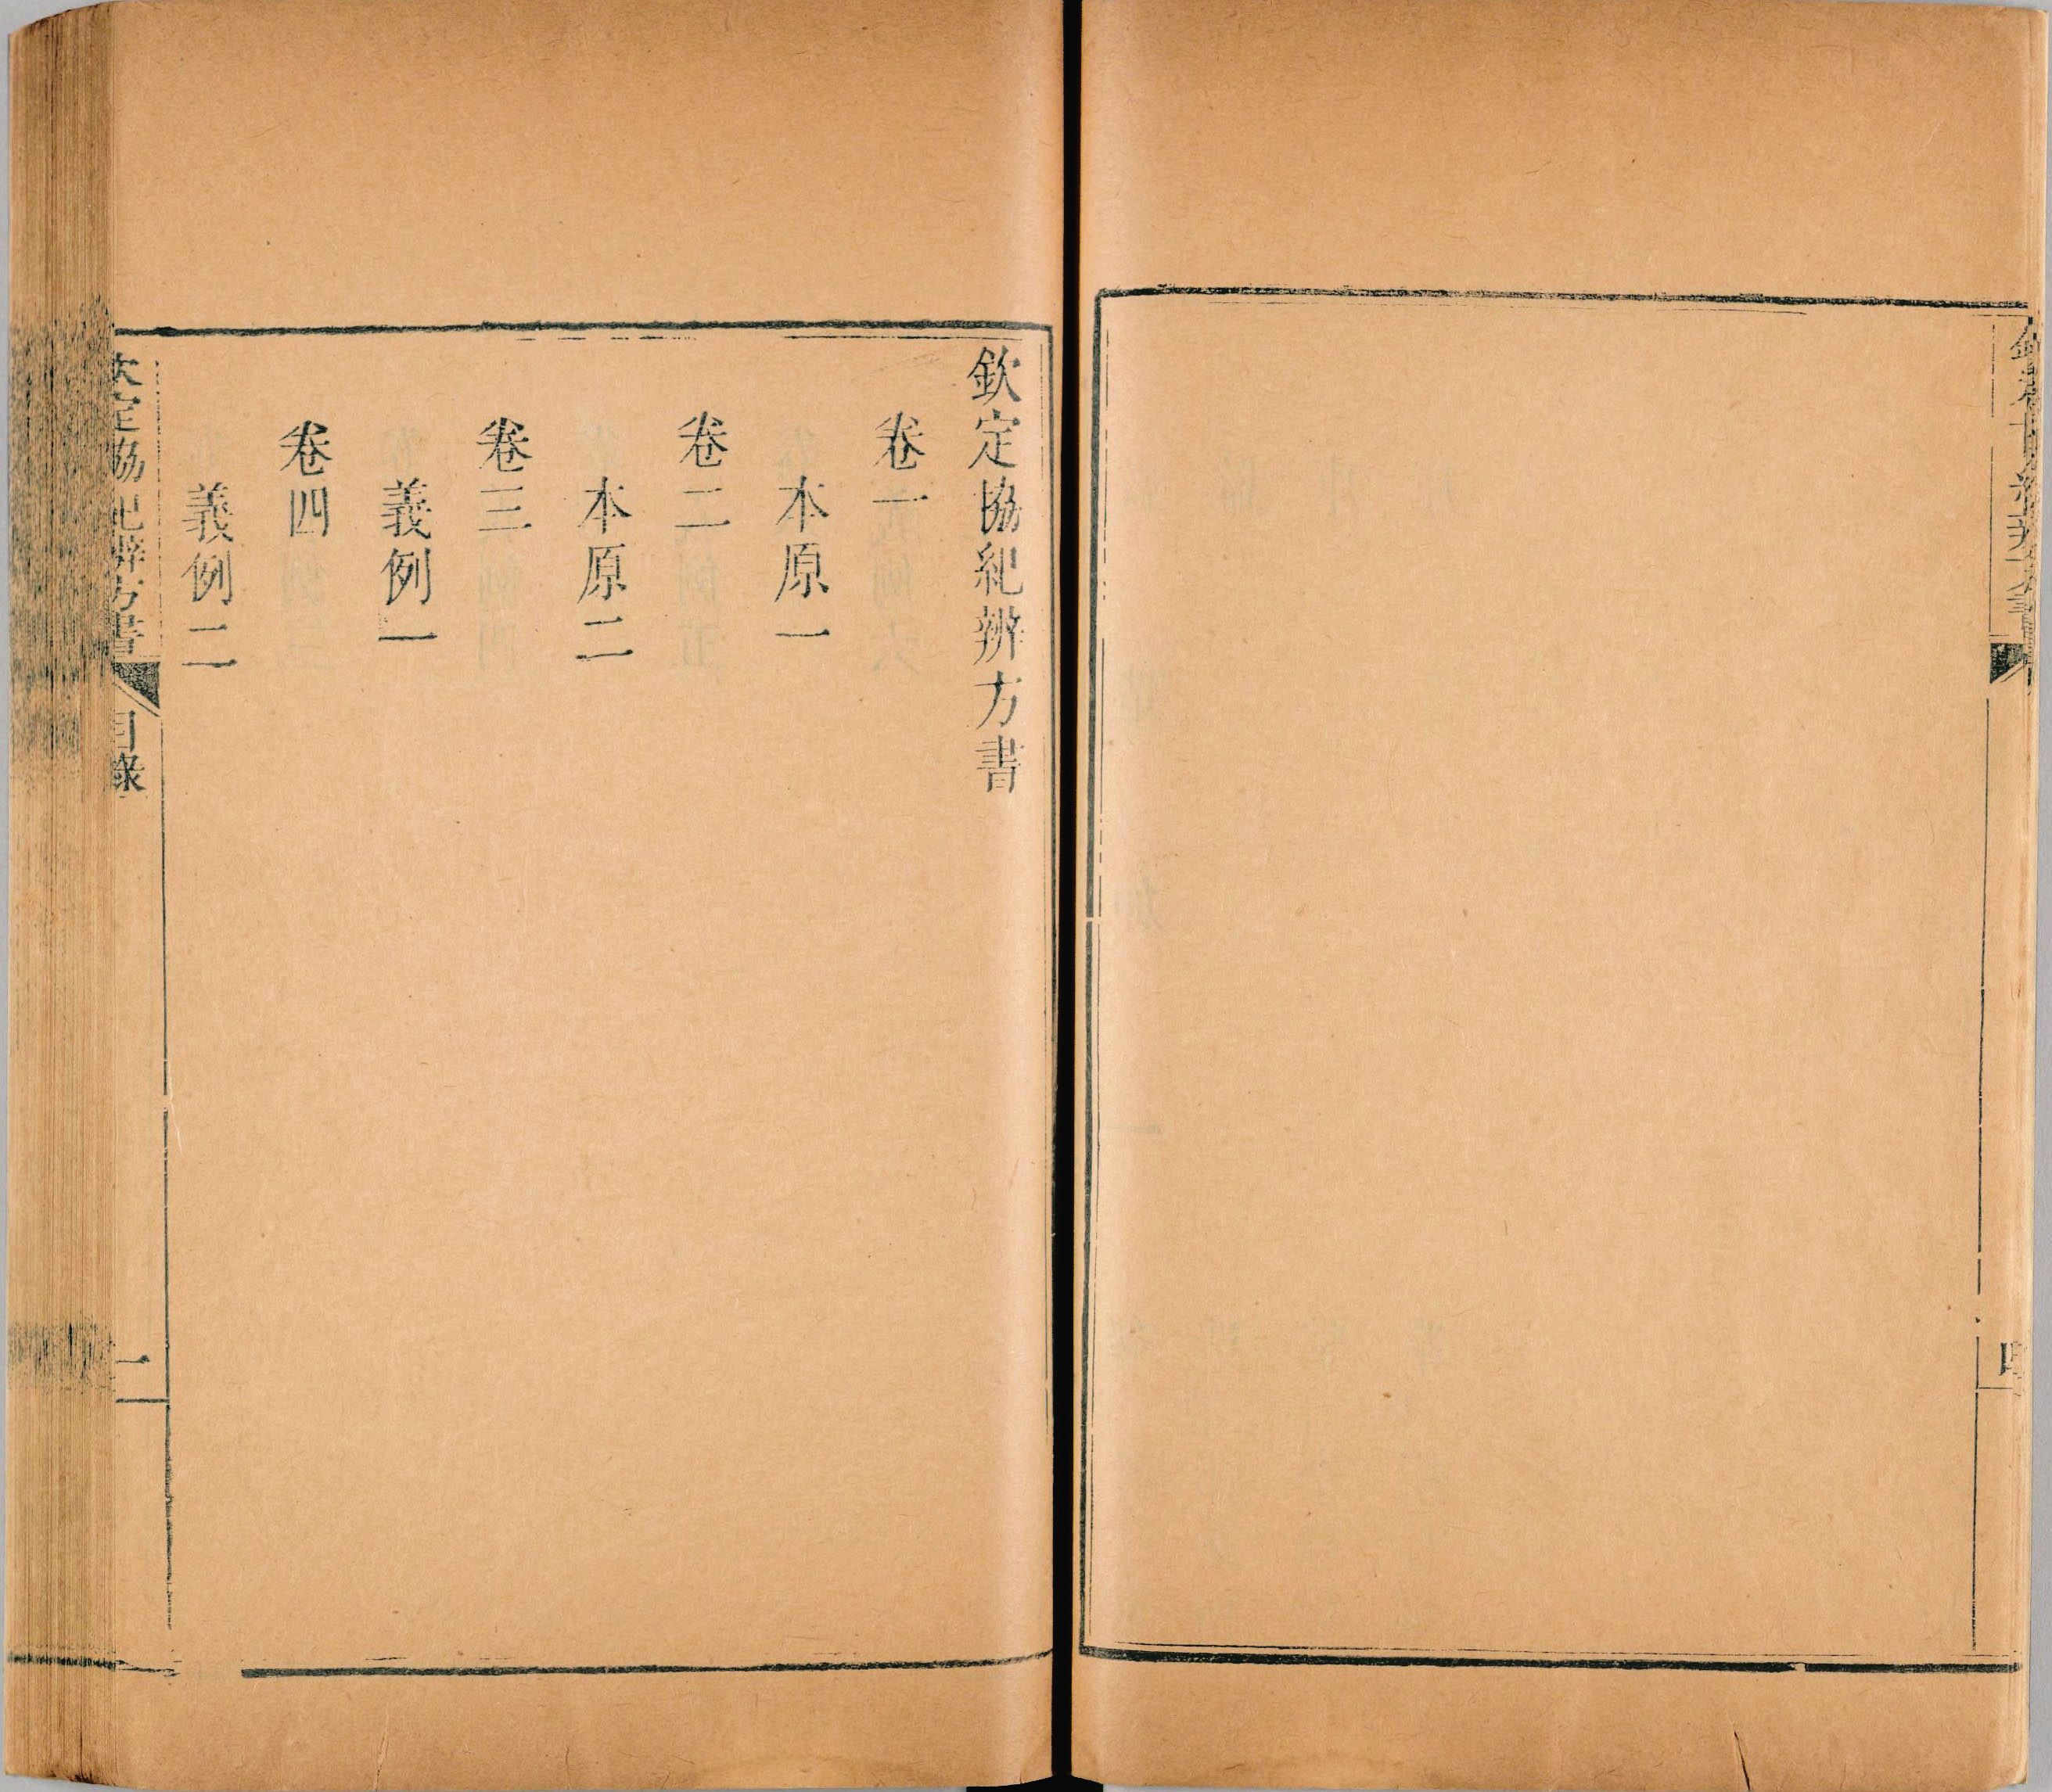 四
欽定協紀辨方書
卷一
本原一
卷二
本原二
卷三
義例一
卷四
義例二
欽定協紀辨方書
目錄
一